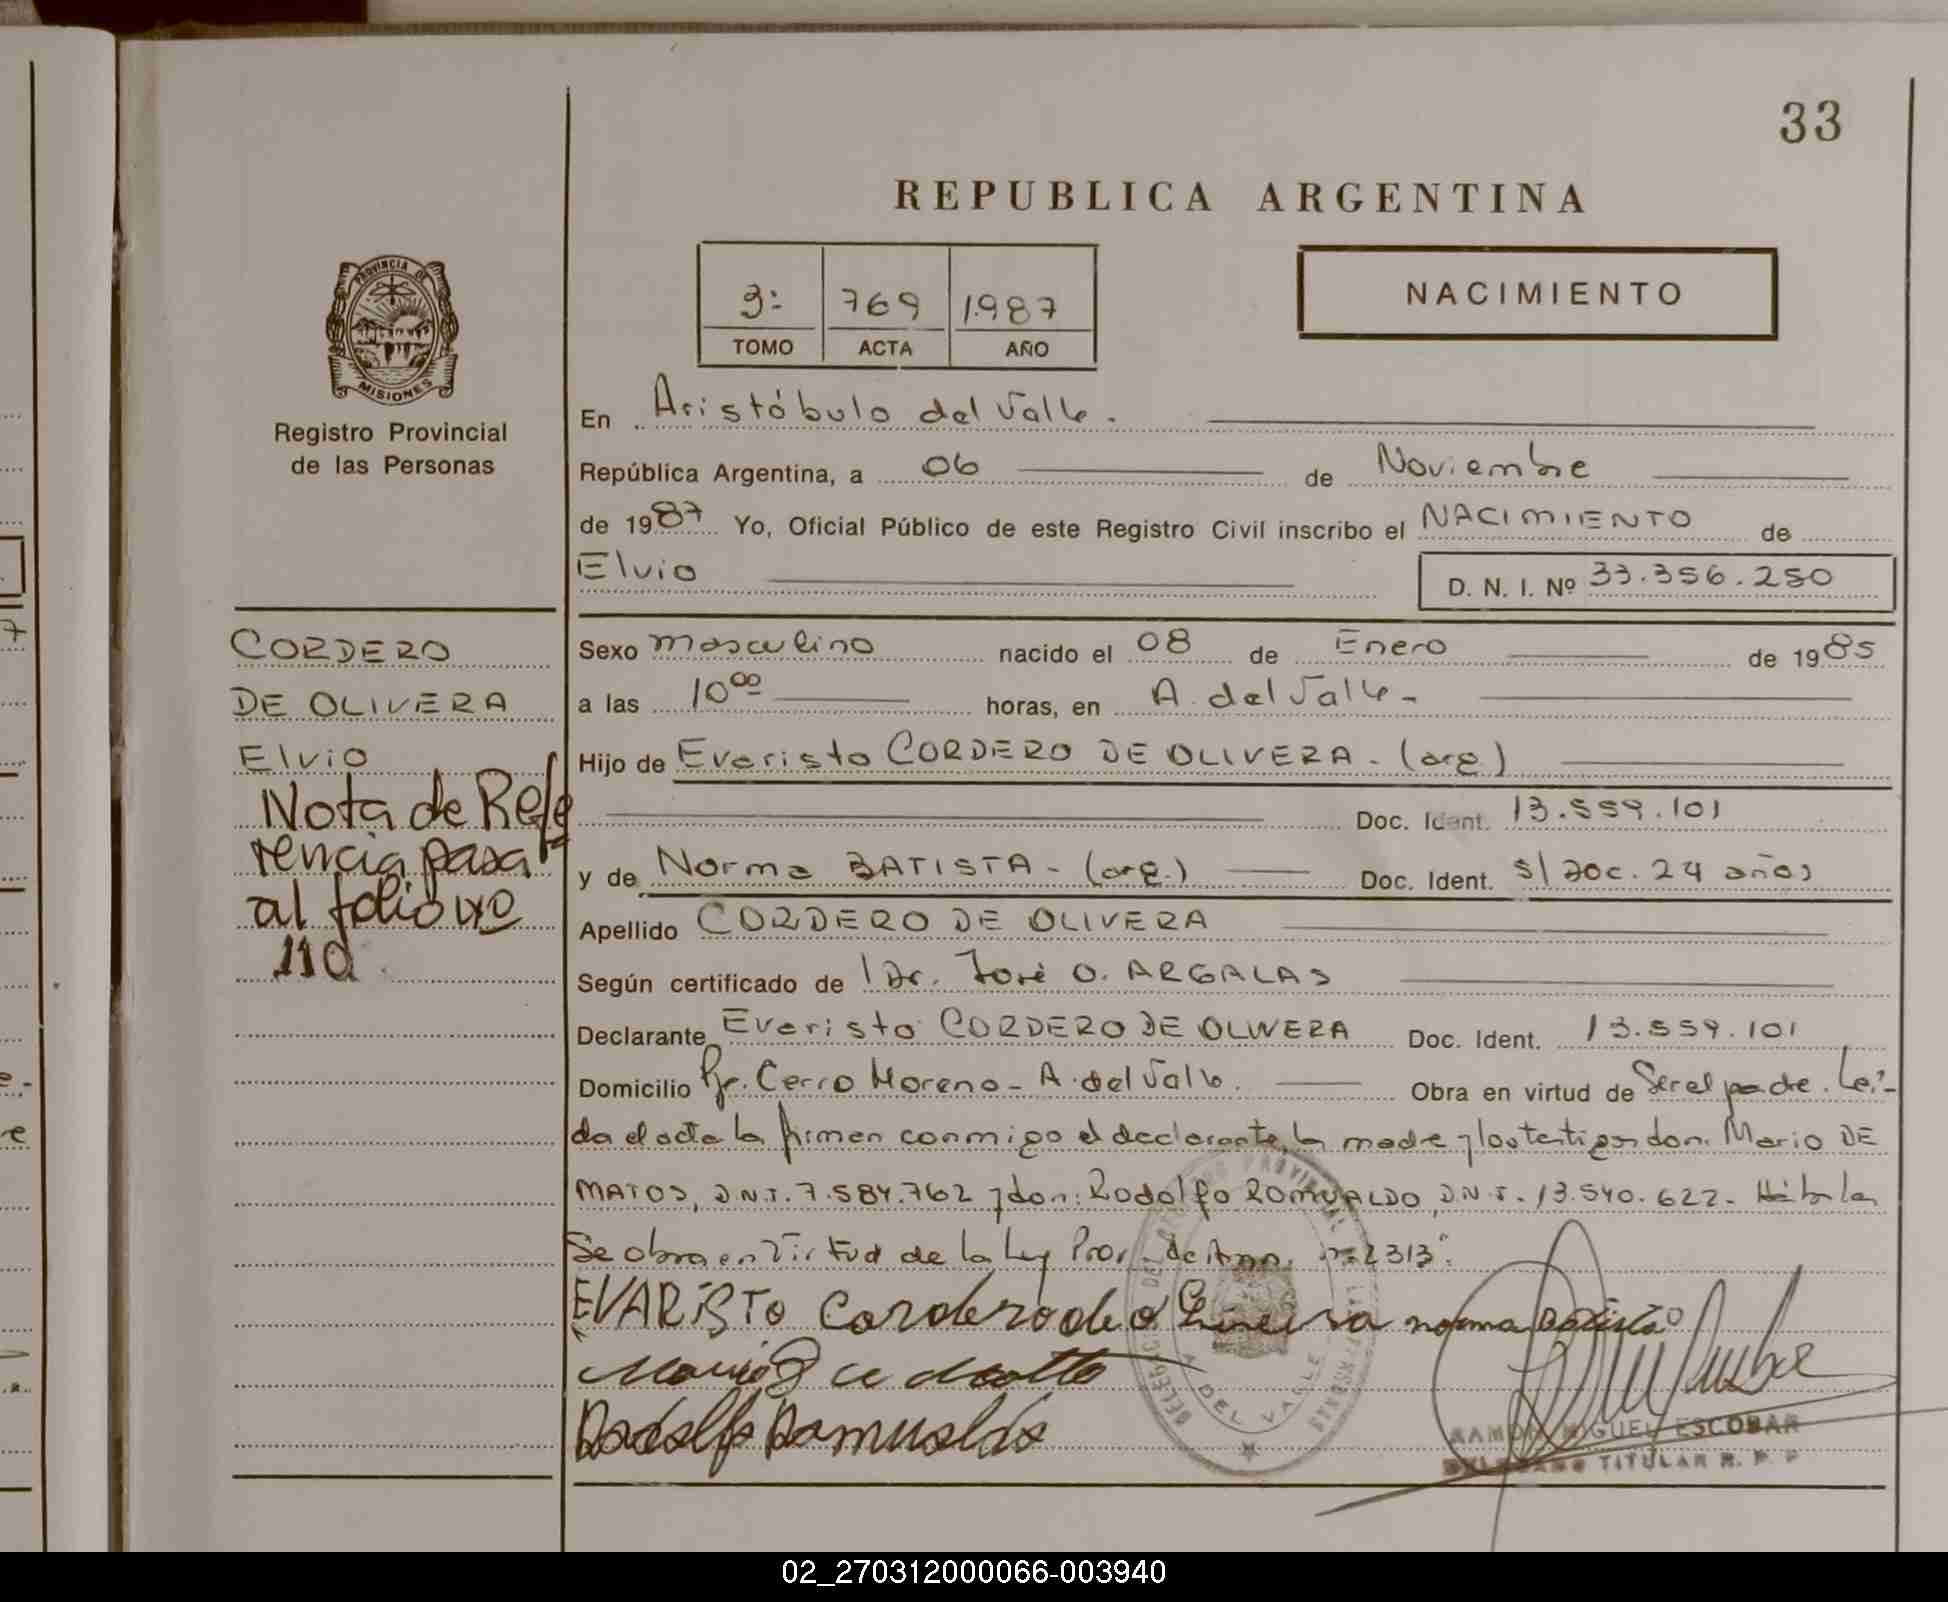 33
REPUBLICA ARGENTINA
PROVINCIA DE
MISIONES
Registro Provincial
de las Personas
3: 769 1.987
TOMO ACTA AÑO
NACIMIENTO
En Aristóbulo del Valle.
República Argentina, a 06 de Noviembre
de 1987 Yo, Oficial Público de este Registro Civil inscribo el NACIMIENTO de
Elvio
D. N. I. Nº 33.356.250
CORDERO
DE OLIVERA
Elvio
Nota de Refe
rencia pasa
al folio nº
110
Sexo masculino nacido el 08 de Enero de 1985
a las 10 00 horas, en A. del Valle -
Hijo de Evaristo CORDERO DE OLIVERA - (arg.)
Doc. Ident. 13.559.101
y de Norma BATISTA - (arg.) Doc. Ident. s/ Doc. 24 años
Apellido CORDERO DE OLIVERA
Según certificado de Dr. José O. ARGALAS
Declarante Evaristo CORDERO DE OLIVERA Doc. Ident. 13.559.101
Domicilio Pje. Cerro Moreno - A. del Valle. Obra en virtud de Ser el padre. Leí-
da el acta la firman conmigo el declarante, la madre y los testigos don: Mario DE
MATOS, D.N.I. 7.584.762 y don: Rodolfo ROMUALDO, D.N.I. 13.540.622 -
Se obra en Virtud de la Ley Prov. de nº 2313.
EVARISTO Corderode Oliveira norma Batista
Mario de Matto
Rodolfo Romualdo
A DEL VALLE
RAMON MIGUEL ESCOBAR
DELEGADO TITULAR R. P. P
02_270312000066-003940